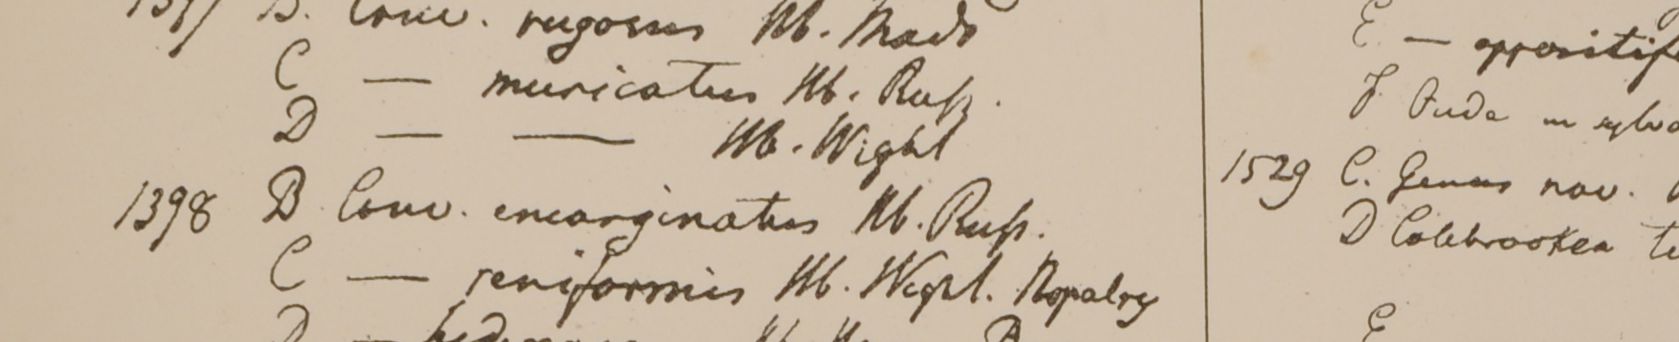 1397 B. Conv. rugosus Hb. Mads
C — muricatus Hb. Russ.
D — — Hb. Wight
1398 B Conv. emarginatus Hb. Russ.
C — reniformis Hb. Wight.
E — oppositif
F
1529 C. Genus nov.
D Colebrookea te
E